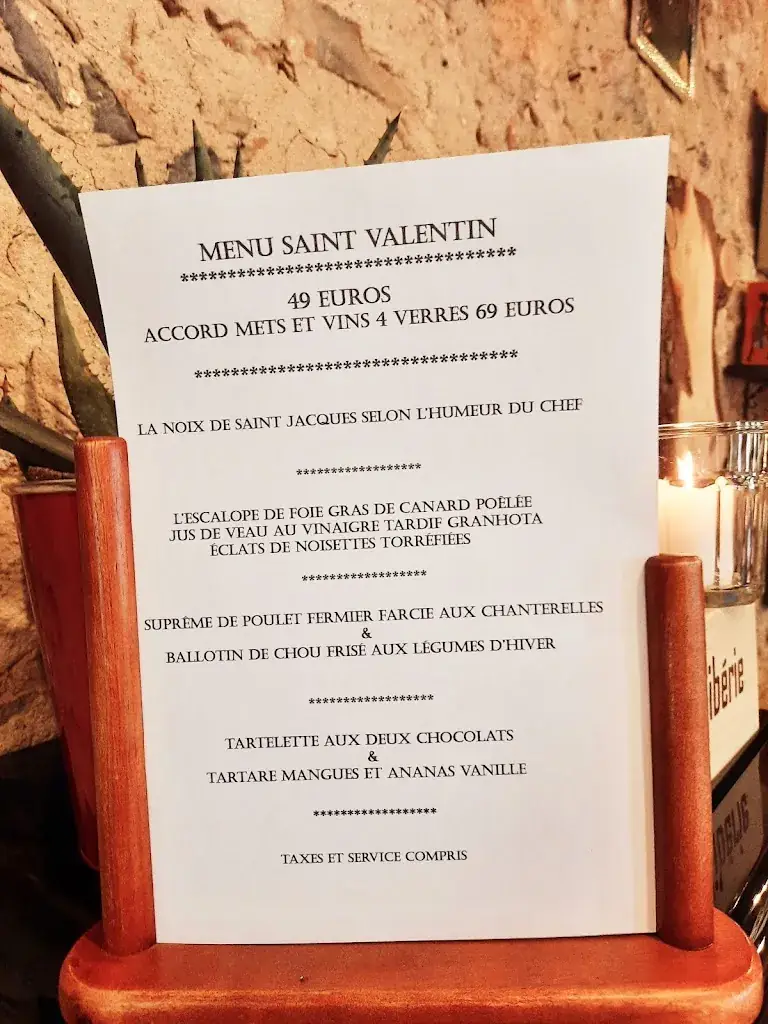 MENU SAINT VALENTIN
**********************************
49 EUROS
ACCORD METS ET VINS 4 VERRES 69 EUROS
**********************************
LA NOIX DE SAINT JACQUES SELON L'HUMEUR DU CHEF
******************
L'ESCALOPE DE FOIE GRAS DE CANARD POÊLÉE
JUS DE VEAU AU VINAIGRE TARDIF GRANHOTA
ÉCLATS DE NOISETTES TORRÉFIÉES
******************
SUPRÊME DE POULET FERMIER FARCIE AUX CHANTERELLES
&
BALLOTIN DE CHOU FRISÉ AUX LÉGUMES D'HIVER
******************
TARTELETTE AUX DEUX CHOCOLATS
&
TARTARE MANGUES ET ANANAS VANILLE
******************
TAXES ET SERVICE COMPRIS
ibérie